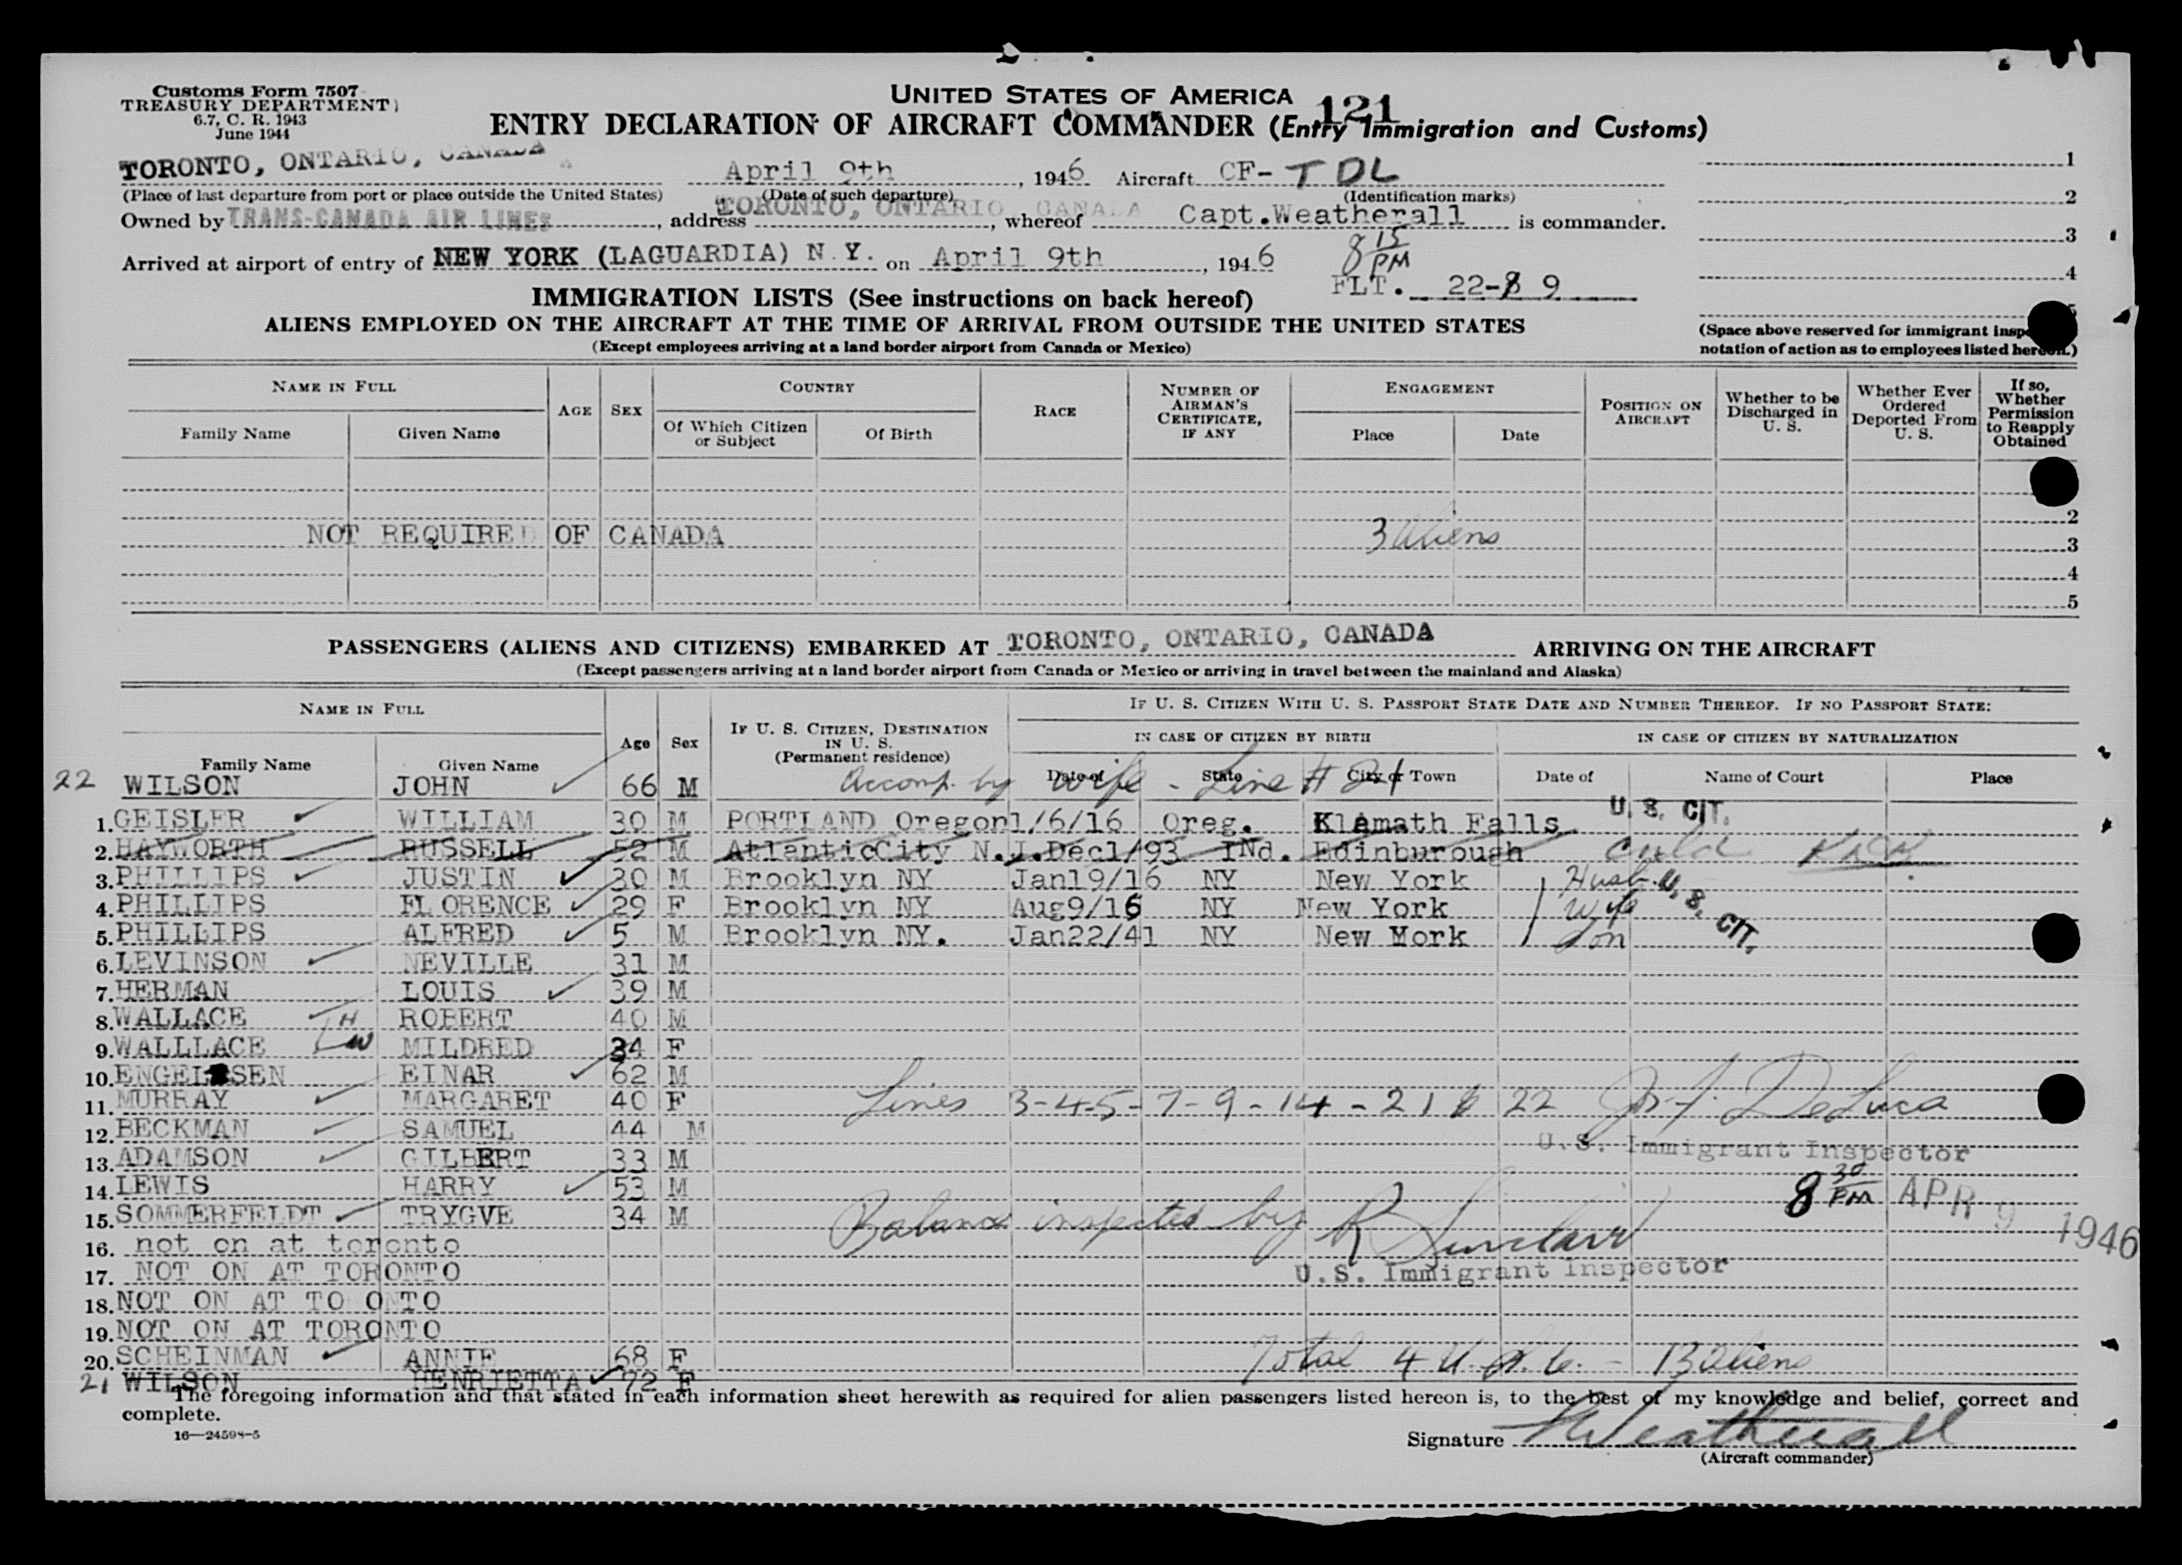 Customs Form 7507
TREASURY DEPARTMENT
6.7, C. R. 1943
June 1944
UNITED STATES OF AMERICA
121
ENTRY DECLARATION OF AIRCRAFT COMMANDER (Entry Immigration and Customs)
TORONTO, ONTARIO, CANADA April 9th, 1946 Aircraft CF-TDL 1
(Place of last departure from port or place outside the United States) (Date of such departure) (Identification marks) 2
Owned by TRANS-CANADA AIR LINES, address TORONTO, ONTARIO, CANADA, whereof Capt.Weatherall is commander.
3
Arrived at airport of entry of NEW YORK (LAGUARDIA) N.Y. on April 9th, 1946 8 15 PM
4
FLT. 22- 9
5
IMMIGRATION LISTS (See instructions on back hereof)
ALIENS EMPLOYED ON THE AIRCRAFT AT THE TIME OF ARRIVAL FROM OUTSIDE THE UNITED STATES
(Except employees arriving at a land border airport from Canada or Mexico)
(Space above reserved for immigrant
notation of action as to employees listed hereon.)
NAME IN FULL AGE SEX COUNTRY RACE NUMBER OF AIRMAN'S CERTIFICATE, IF ANY ENGAGEMENT POSITION ON AIRCRAFT Whether to be Discharged in U. S. Whether Ever Ordered Deported From U. S. If so, Whether Permission to Reapply Obtained
Family Name Given Name Of Which Citizen or Subject Of Birth Place Date
2
NOT REQUIRED OF CANADA 3 aliens 3
4
5
PASSENGERS (ALIENS AND CITIZENS) EMBARKED AT TORONTO, ONTARIO, CANADA ARRIVING ON THE AIRCRAFT
(Except passengers arriving at a land border airport from Canada or Mexico or arriving in travel between the mainland and Alaska)
NAME IN FULL Age Sex IF U. S. CITIZEN, DESTINATION IN U. S. (Permanent residence) IF U. S. CITIZEN WITH U. S. PASSPORT STATE DATE AND NUMBER THEREOF. IF NO PASSPORT STATE:
IN CASE OF CITIZEN BY BIRTH IN CASE OF CITIZEN BY NATURALIZATION
Family Name Given Name Date of State City or Town Date of Name of Court Place
22 WILSON JOHN 66 M Accomp. by wife - Line # 21
1. GEISLER WILLIAM 30 M PORTLAND Oregon 1/6/16 Oreg. Klamath Falls U. S. CIT.
2. HAYWORTH RUSSELL 52 M AtlanticCity N.J. Dec1/93 INd. Edinburough
3. PHILLIPS JUSTIN 30 M Brooklyn NY Jan19/16 NY New York Husb. U. S. CIT.
4. PHILLIPS FLORENCE 29 F Brooklyn NY Aug9/16 NY New York Wife
5. PHILLIPS ALFRED 5 M Brooklyn NY. Jan22/41 NY New Mork Son
6. LEVINSON NEVILLE 31 M
7. HERMAN LOUIS 39 M
8. WALLACE H ROBERT 40 M
9. WALLLACE W MILDRED 34 F
10. ENGELSEN EINAR 62 M
11. MURRAY MARGARET 40 F Lines 3-4-5-7-9-14-21 & 22 Jos. F. DeLuca
12. BECKMAN SAMUEL 44 M
U.S. Immigrant Inspector
13. ADAMSON GILBERT 33 M
14. LEWIS HARRY 53 M 8 30 PM APR 9 1946
15. SOMMERFELDT TRYGVE 34 M Balance inspected by R Sinclair
16. not on at toronto
17. NOT ON AT TORONTO U.S. Immigrant Inspector
18. NOT ON AT TO ONTO
19. NOT ON AT TORONTO
20. SCHEINMAN ANNIE 68 F Total 4 U.S.C. - 13 aliens
21 WILSON HENRIETTA 72 F
The foregoing information and that stated in each information sheet herewith as required for alien passengers listed hereon is, to the best of my knowledge and belief, correct and
complete.
16—24598-5
Signature Weatherall
(Aircraft commander)